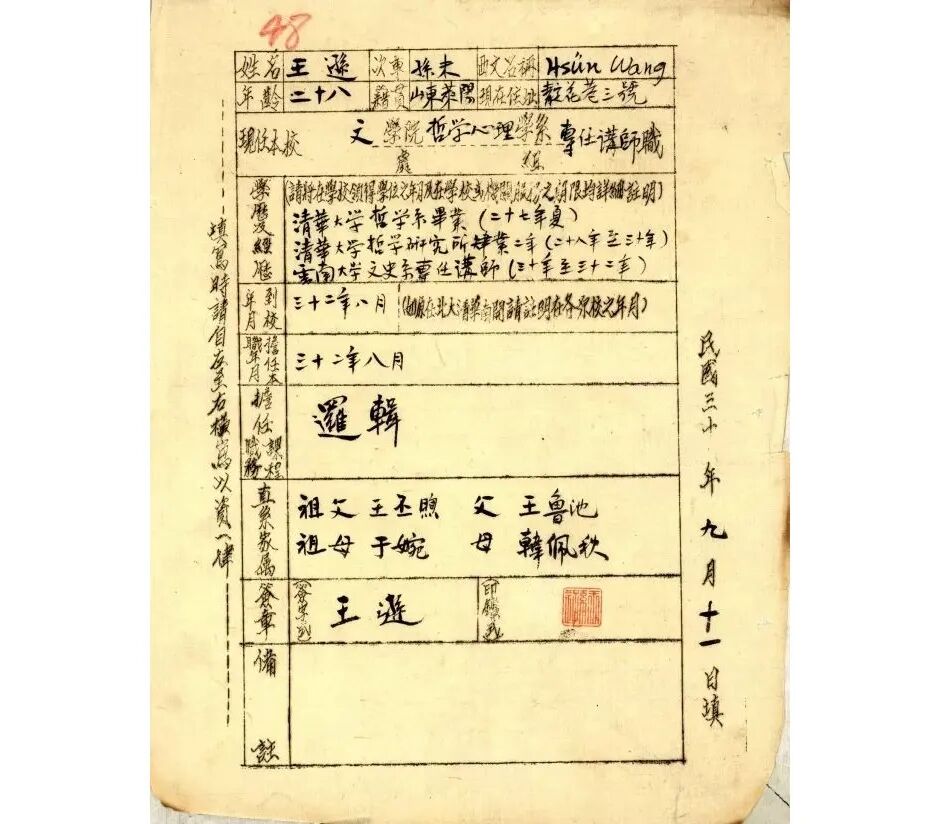 48
姓名 王遜 次章 孫末 西文名稱 Hsün Wang
年齡 二十八 籍貫 山東萊陽 現在住址 花巷三號
現任本校 文學院哲学心理學系專任講師職
處 組
学歷及經歷 (請將在學校領得學位之年月及在學校或機關服務之期限均詳細註明)
清華大学哲学系畢業(二十七年夏)
清華大学哲学研究所肄業二年(二十八年至三十年)
雲南大学文史系專任講師(三十年至三十二年)
到校年月 三十二年八月 (如原在北大清華南開請註明在各原校之年月)
擔任本職年月 三十二年八月
擔任課程職務 邏輯
直系家屬 祖父 王丕煦 父 王魯池
祖母 于婉 母 韓佩秋
簽章 (簽字式) 王遜 (印鑑式)
備註
填寫時請自左至右橫寫以資一律
民國三十 年九月十一日填